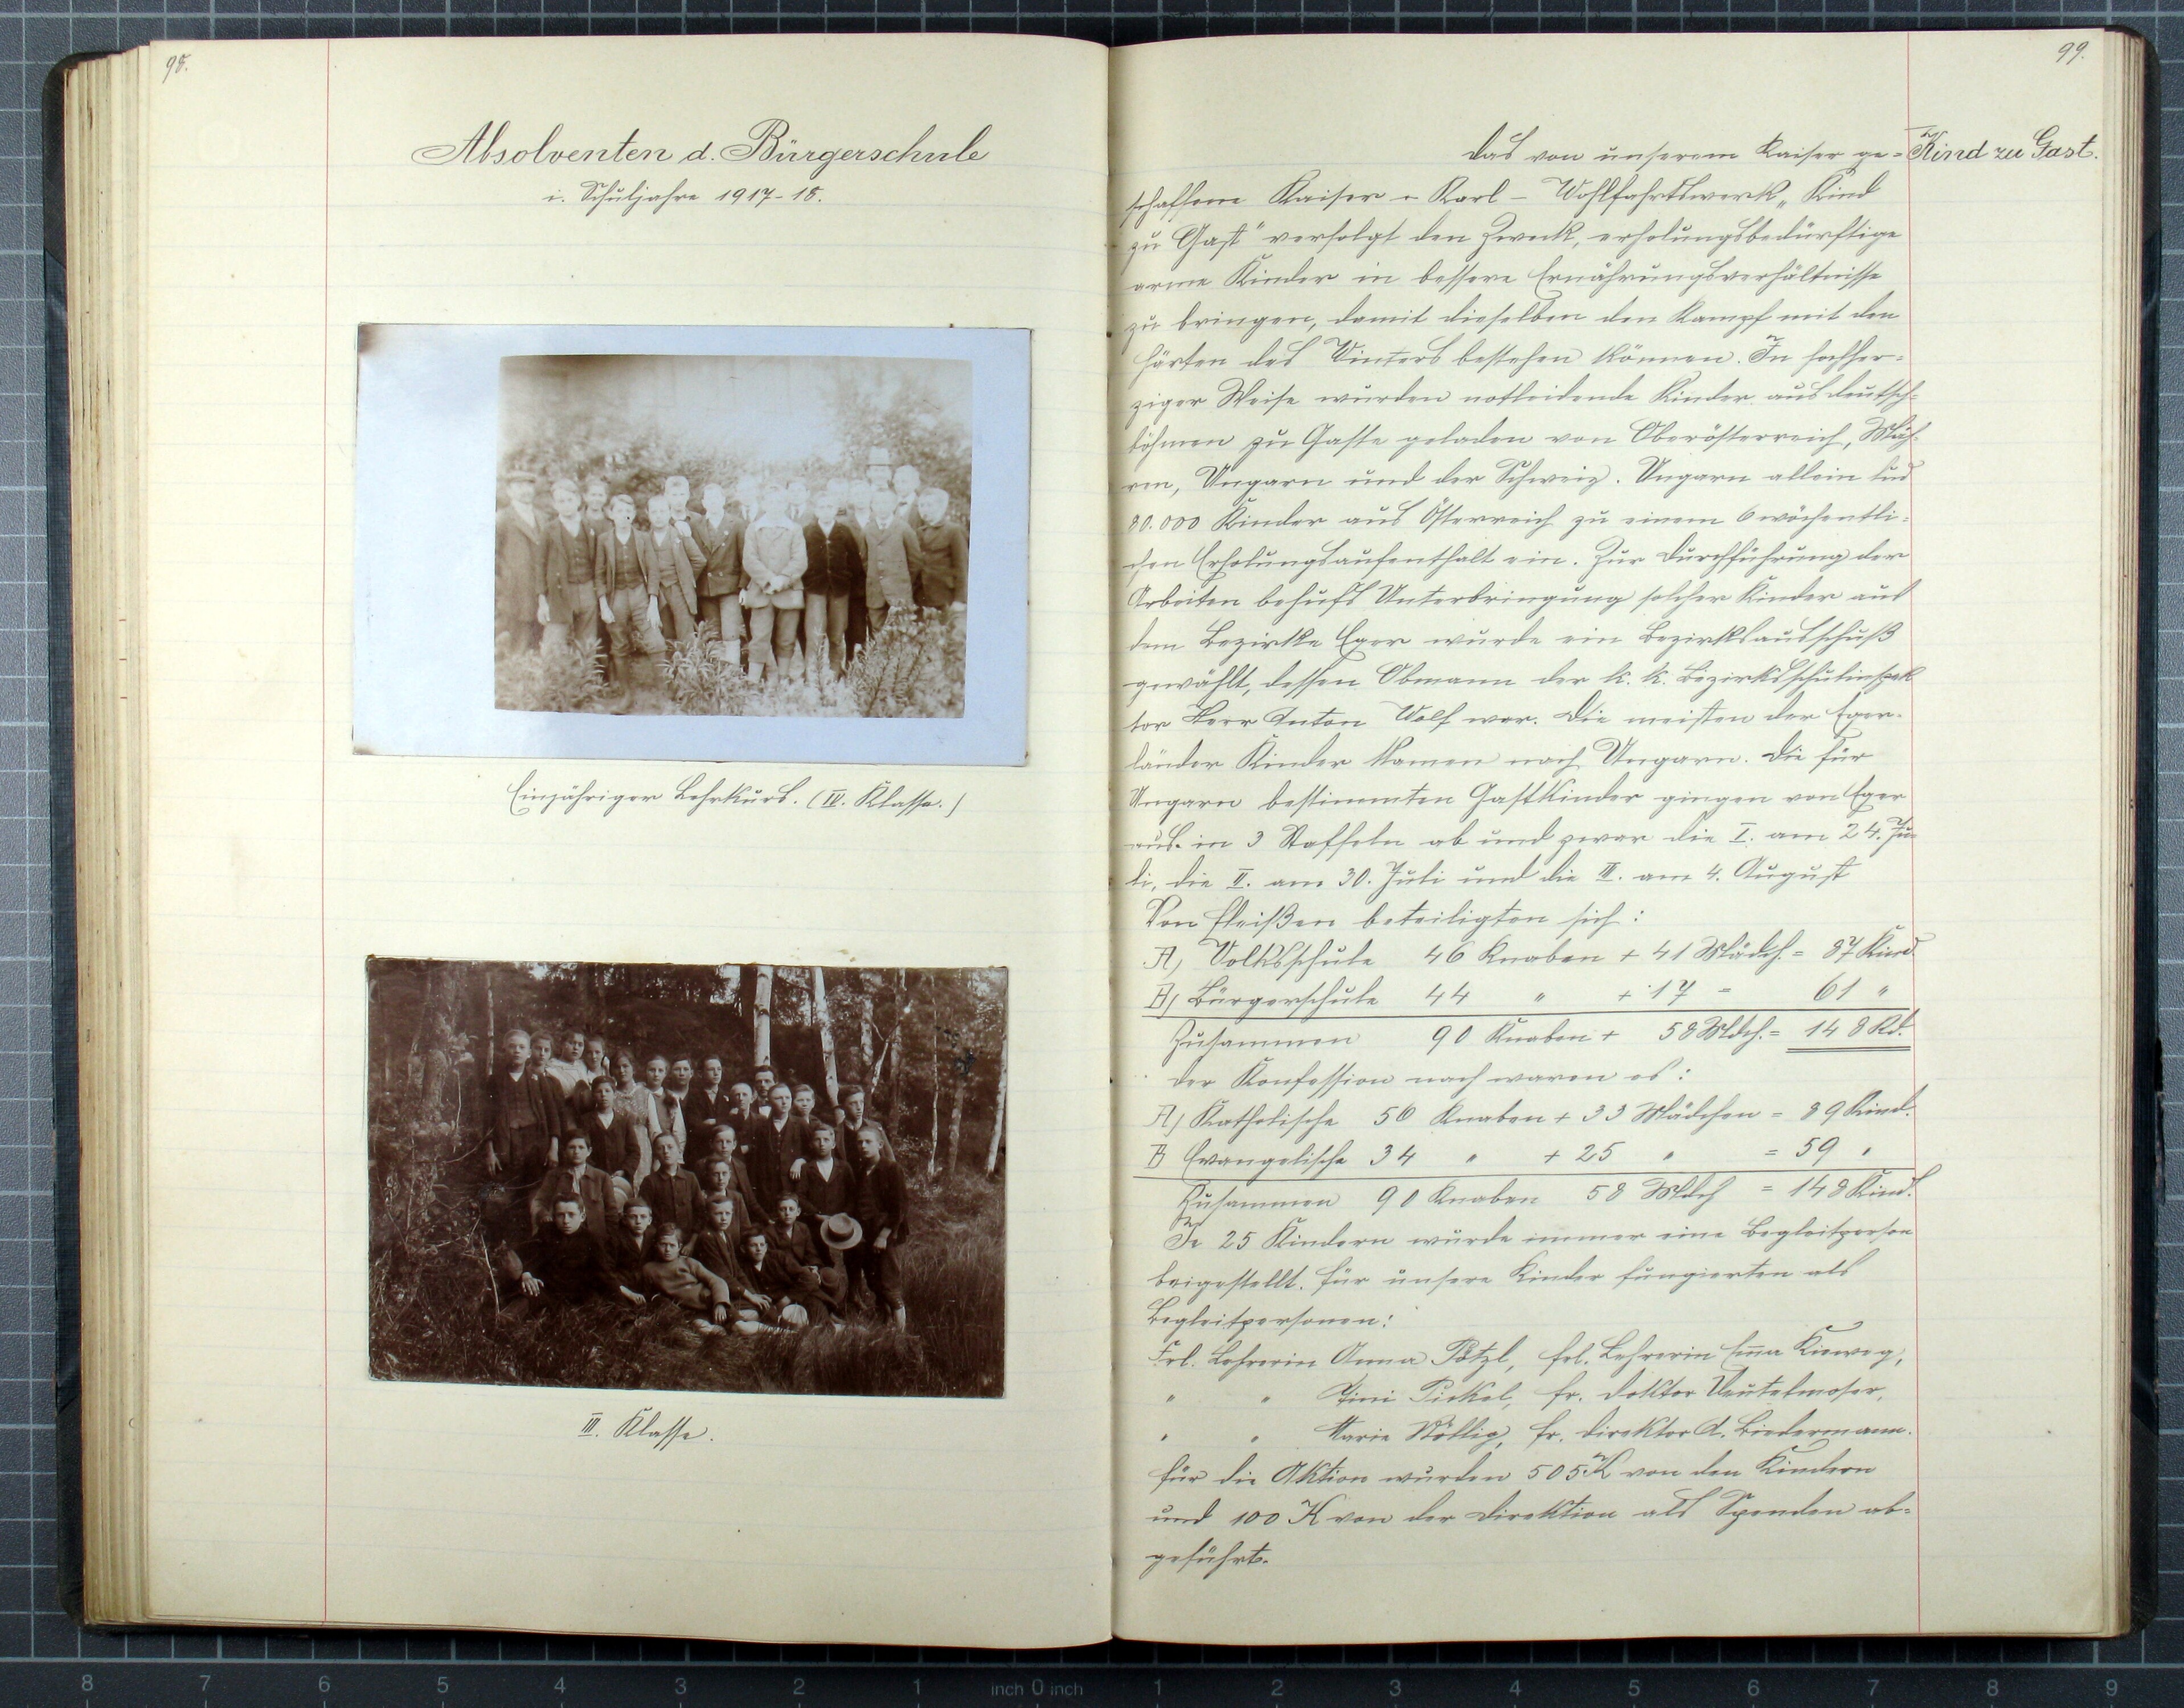 98.
Absolventen d. Bürgerschule
i. Schuljahre 1917-18.
Einjähriger Lehrkurs. (IV. Klasse.)
III. Klasse.
99.
Kind zu Gast.
Das von unserem Kaiser ge=
schaffene Kaiser - Karl - Wohlfahrtswerk „Kind
zu Gast" verfolgt den Zweck, erholungsbedürftige
arme Kinder in bessere Ernährungsverhältnisse
zu bringen, damit dieselben den Kampf mit den
Härten des Winters bestehen können. In hochher=
ziger Weise wurden notleidende Kinder aus Deutsch=
böhmen zu Gaste geladen von Oberösterreich, Mäh=
ren, Ungarn und der Schweiz. Ungarn allein lud
80.000 Kinder aus Österreich zu einem 6 wöchentli=
chen Erholungsaufenthalt ein. Zur Durchführung der
Arbeiten behufs Unterbringung solcher Kinder aus
dem Bezirke Eger wurde ein Bezirksausschuß
gewählt, dessen Obmann der k. k. Bezirksschulinspek
tor Herr Anton Wolf war. Die meisten der Eger=
länder Kinder kamen nach Ungarn. Die für
Ungarn bestimmten Gastkinder gingen von Eger
aus in 3 Staffeln ab und zwar die I. am 24. Ju=
li, die II. am 30. Juli und die III. am 4. August
Von Fleißen beteiligten sich:
A) Volksschule 46 Knaben + 41 Mädch. = 87 Kind.
B) Bürgerschule 44 " + 17 = 61 "
Zusammen 90 Knaben + 58 Mdch. = 148 Kd.
Der Konfession nach waren es:
A) Katholische 56 Knaben + 33 Mädchen = 89 Kind.
B Evangelische 34 " + 25 " = 59 "
Zusammen 90 Knaben 58 Mdch = 148 Kind.
Je 25 Kindern wurde immer eine Begleitperson
beigestellt. Für unsere Kinder fungierten als
Begleitpersonen:
Frl. Lehrerin Anna Pötzl, Frl. Lehrerin Em̄a Kieweg,
" " Tini Pickel, Fr. Doktor Veutelmoser,
" " Marie Wöllig, Fr. Direktor A. Biedermann.
Für die Aktion wurden 505 K von den Kindern
und 100 K von der Direktion als Spenden ab=
geführt.
8 7 6 5 4 3 2 1 inch 0 inch 1 2 3 4 5 6 7 8 9